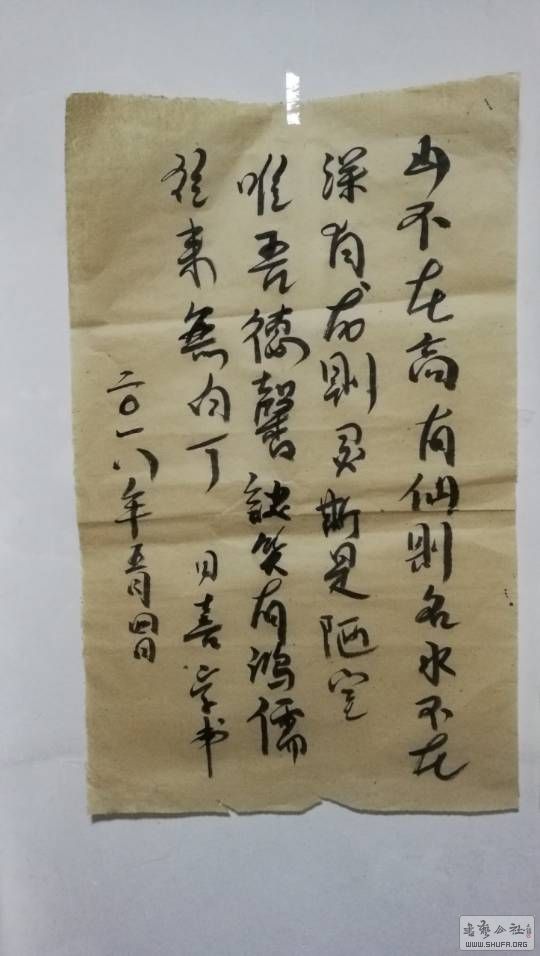 山不在高有仙则名水不在
深有龙则灵斯是陋室
唯吾德馨談笑有鸿儒
往来無白丁
日喜字书
二〇一八年五月四日
書藝公社
WWW.SHUFA.ORG